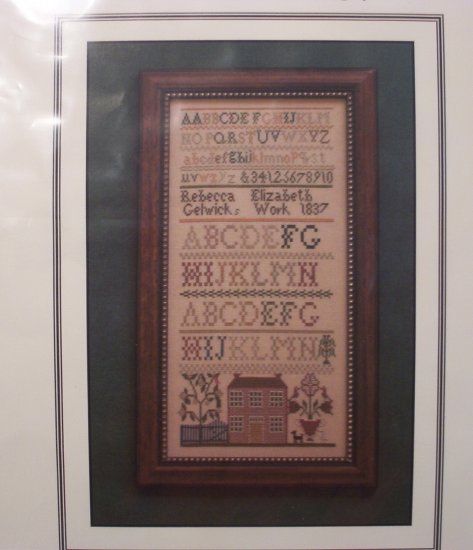 AABBCDEFGHIJKLM
NOPQRSTUVWXYZ
abcdefghijklmnopqrst
uvwxyz &34125678910
Rebecca Elizabeth
Gelwicks Work 1837
ABCDEFG
HIJKLMN
ABCDEFG
HIJKLMN